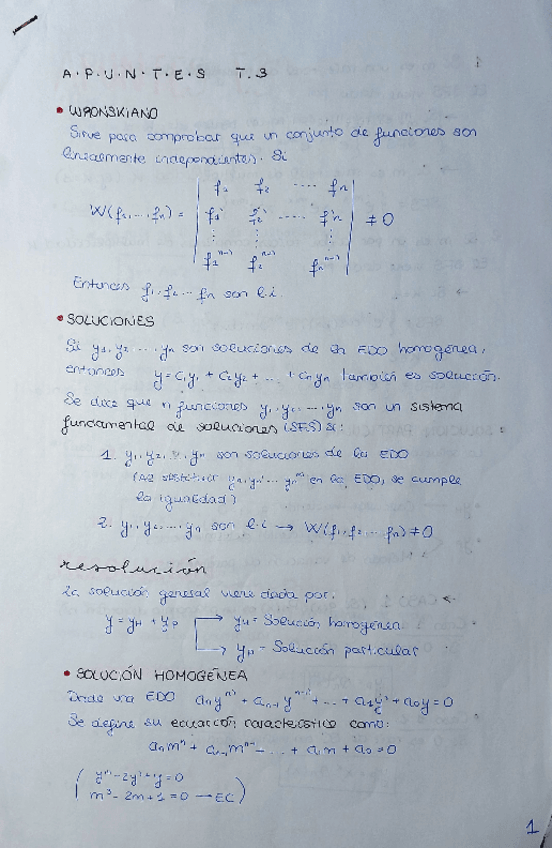 A·P·U·N·T·E·S T.3
• WRONSKIANO
Sirve para comprobar que un conjunto de funciones son
linealmente independientes. Si
f₁ f₂ ---- fn
W(f₁,...,fn) = f₁' f₂' ---- f'n ≠ 0
⋮ ⋮ ⋮
f₁ⁿ⁻¹⁾ f₂ⁿ⁻¹⁾ fnⁿ⁻¹⁾
Entonces f₁, f₂ ... fn son l.i.
• SOLUCIONES
Si y₁, y₂ ... yn son soluciones de una EDO homogénea,
entonces y = C₁y₁ + C₂y₂ + ... + Cnyn también es solución.
Se dice que n funciones y₁, y₂, ..., yn son un sistema
fundamental de soluciones (SFS) si:
1. y₁, y₂, ..., yn son soluciones de la EDO
en la EDO, se cumple
la igualdad)
2. y₁, y₂, ..., yn son l.i → W(f₁, f₂ ... fn) ≠ 0
resolución
La solución general viene dada por:
y = yH + yp → yH = Solución homogénea
→ yH = Solución particular
• SOLUCIÓN HOMOGÉNEA
Dada una EDO anyⁿ⁾ + an-1yⁿ⁻¹⁾ + ... + a₁y' + a₀y = 0
Se define su ecuación característica como:
anmⁿ + an-1mⁿ⁻¹ ... + a₁m + a₀ = 0
- 2y' + y = 0
- 2m + 1 = 0 → EC
1